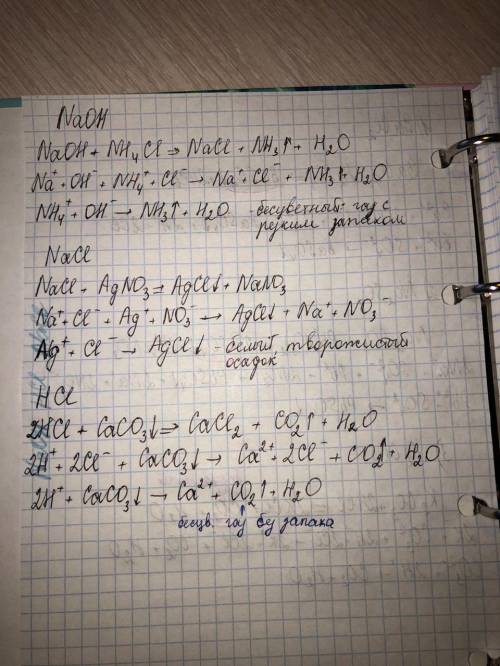 NaOH
NaOH + NH₄Cl ⇒ NaCl + NH₃↑ + H₂O
Na⁺ + OH⁻ + NH₄⁺ + Cl⁻ → Na⁺ + Cl⁻ + NH₃↑ + H₂O
NH₄⁺ + OH⁻ → NH₃↑ + H₂O - бесцветный газ с
резким запахом
NaCl
NaCl + AgNO₃ ⇒ AgCl↓ + NaNO₃
Na⁺ + Cl⁻ + Ag⁺ + NO₃⁻ → AgCl↓ + Na⁺ + NO₃⁻
Ag⁺ + Cl⁻ → AgCl↓ - белый творожистый
осадок
HCl
2HCl + CaCO₃↓ ⇒ CaCl₂ + CO₂↑ + H₂O
2H⁺ + 2Cl⁻ + CaCO₃↓ → Ca²⁺ + 2Cl⁻ + CO₂↑ + H₂O
2H⁺ + CaCO₃↓ → Ca²⁺ + CO₂↑ + H₂O
бесцв. газ без запаха